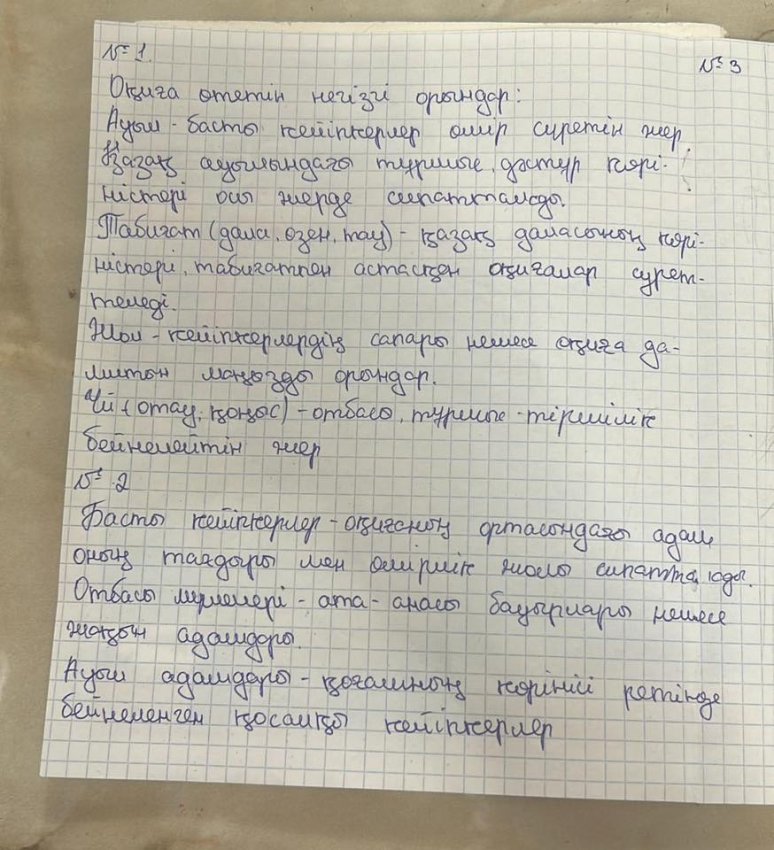 № 1.
№ 3
Оқиға өтетін негізгі орындар:
Ауыл - басты кейіпкерлер өмір сүретін жер.
Қазақ ауылындағы тұрмыс, дәстүр көрі-
ністері осы жерде сипатталады.
Табиғат (дала, өзен, тау) - қазақ даласының көрі-
ністері, табиғатпен астасқан оқиғалар сурет-
теледі.
Жол - кейіпкерлердің сапары немесе оқиға да-
митын маңызды орындар.
Үй (отау, қоныс) - отбасы, тұрмыс-тіршілік
бейнелейтін жер
№ 2
Басты кейіпкерлер - оқиғаның ортасындағы адам,
оның тағдыры мен өмірлік жолы сипатталады.
Отбасы мүшелері - ата-анасы бауырлары немесе
жақын адамдары.
Ауыл адамдары - қоғамның көрінісі ретінде
бейнеленген қосалқы кейіпкерлер